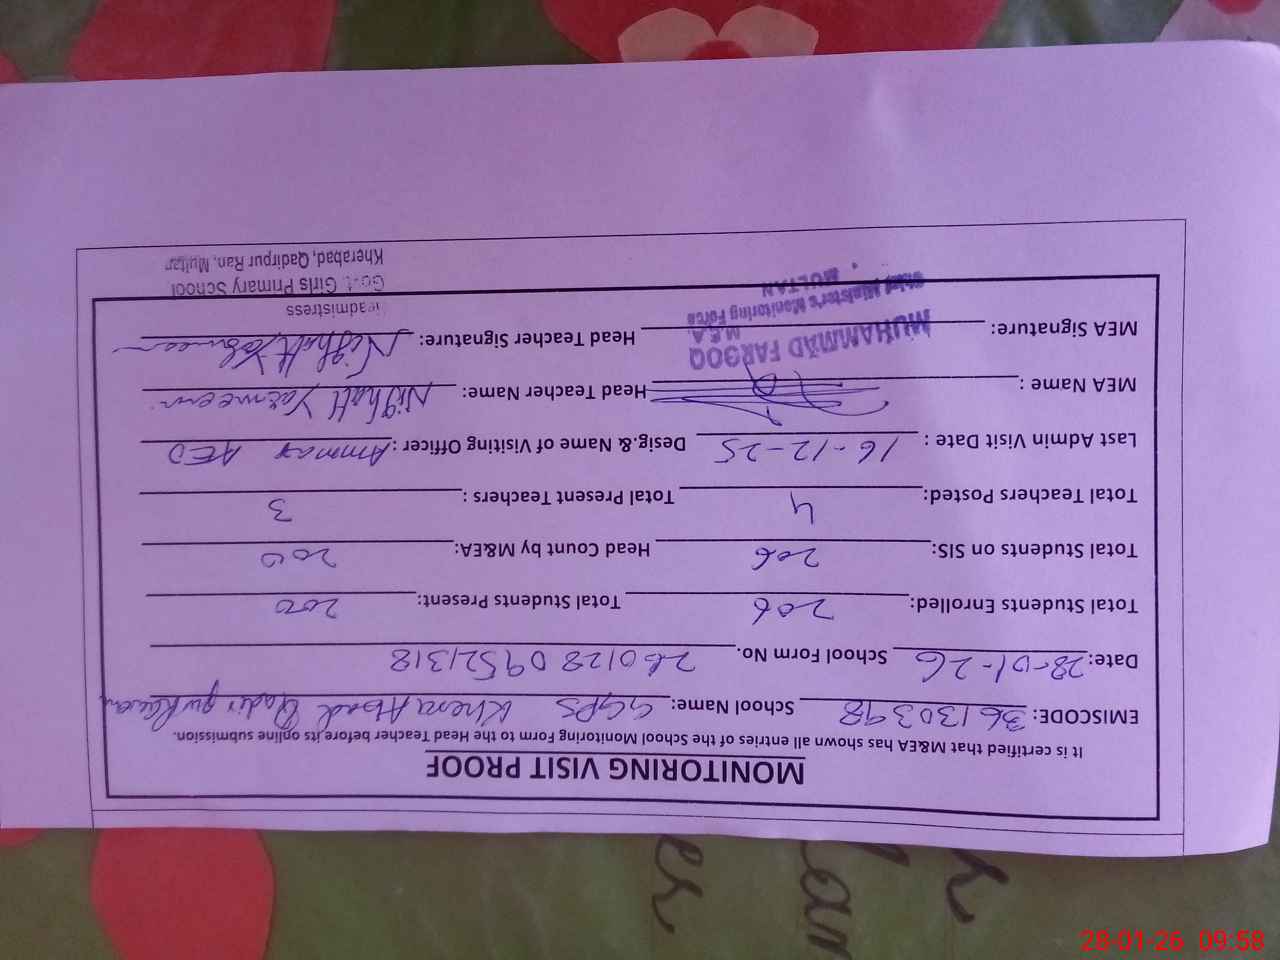 MONITORING VISIT PROOF
It is certified that M&EA has shown all entries of the School Monitoring Form to the Head Teacher before its online submission.
EMISCODE: 36130398 School Name: GGPS Khera Abad Qadir pur Rawan
Date: 28-01-26 School Form No. 26012809521318
Total Students Enrolled: 206 Total Students Present: 200
Total Students on SIS: 206 Head Count by M&EA: 200
Total Teachers Posted: 4 Total Present Teachers : 3
Last Admin Visit Date : 16-12-25 Desig.&. Name of Visiting Officer : Ammar AEO
MEA Name : Head Teacher Name: Nighatt Yasmeen
MEA Signature: Head Teacher Signature: Nighatt Yasmeen
MUHAMMAD FAROOQ
M.E.A.
Chief Minister's Monitoring Force
MULTAN
eadmistress
Govt. Girls Primary School
Kherabad, Qadirpur Ran, Multan
28-01-26 09:58